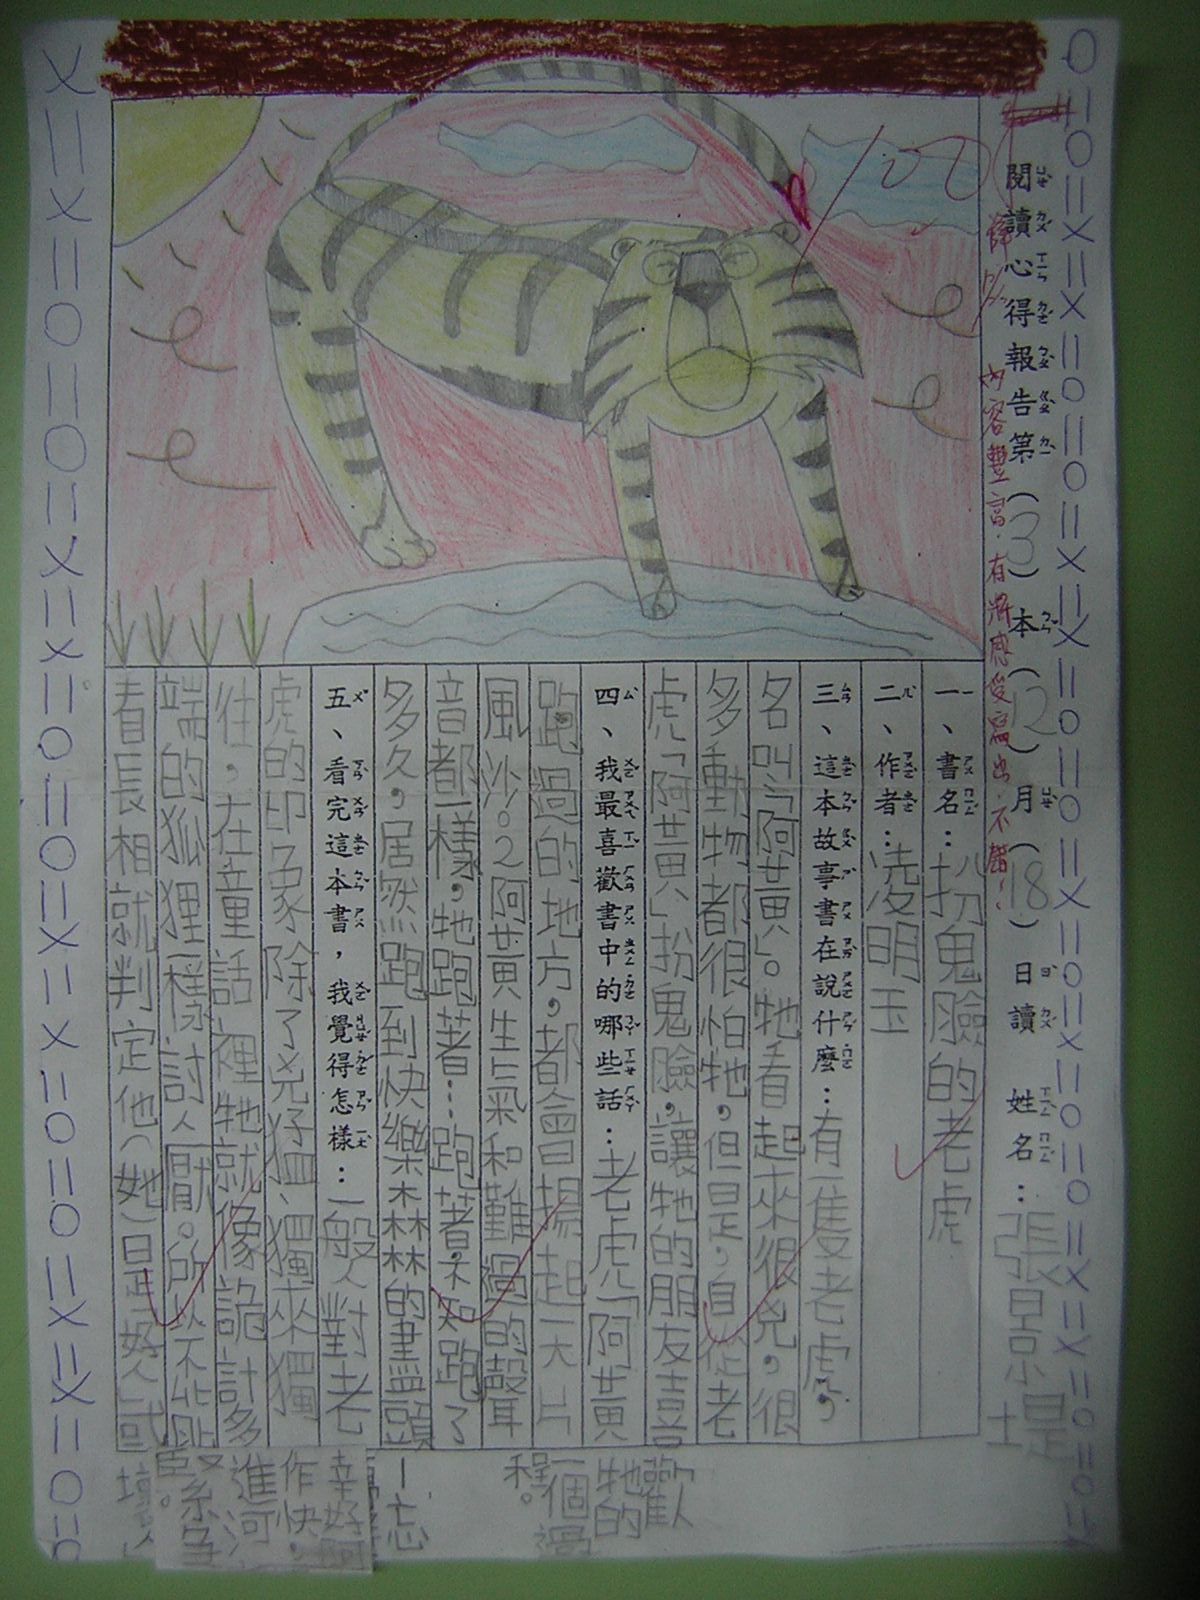 閱讀心得報告第(3)本(12)月(18)日讀 姓名：張景堤
100
內容豐富，有將感受寫出，不錯！
一、書名：扮鬼臉的老虎
二、作者：凌明玉
三、這本故事書在說什麼：有一隻老虎，
名叫「阿黃」。牠看起來很兇，很
多動物都很怕牠，但是，自從老
虎「阿黃」扮鬼臉，讓牠的朋友喜
歡牠的一個過程。
四、我最喜歡書中的哪些話：老虎「阿黃
跑過的地方，都會揚起一大片
風沙。2阿黃生氣和難過的聲
音都一樣，牠跑著…跑著，不知跑了
多久，居然跑到快樂森林的盡頭
五、看完這本書，我覺得怎樣：一般人對老
虎的印象除了兇猛、獨來獨
往，在童話裡牠就像詭計多
端的狐狸一樣，討人厭。所以不能
看長相就判定他(她)是好人或
壞人